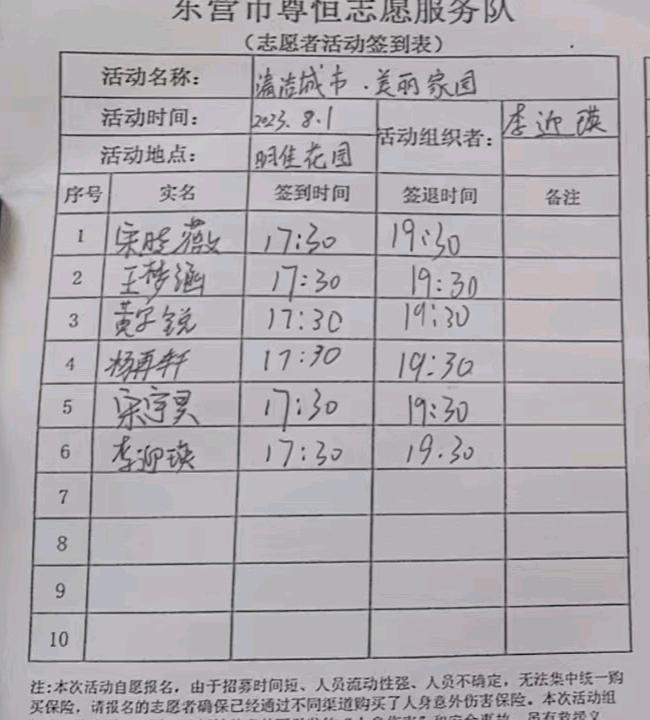 东营市尊恒志愿服务队
（志愿者活动签到表）
活动名称： 清洁城市·美丽家园
活动时间： 2023.8.1 活动组织者： 李迎瑛
活动地点： 明佳花园
序号 实名 签到时间 签退时间 备注
1 宋晓薇 17:30 19:30
2 王梦涵 17:30 19:30
3 黄子锐 17:30 19:30
4 杨再轩 17:30 19:30
5 宋宇昊 17:30 19:30
6 李迎瑛 17:30 19.30
7
8
9
10
注:本次活动自愿报名，由于招募时间短、人员流动性强、人员不确定，无法集中统一购
买保险，请报名的志愿者确保已经通过不同渠道购买了人身意外伤害保险。本次活动组